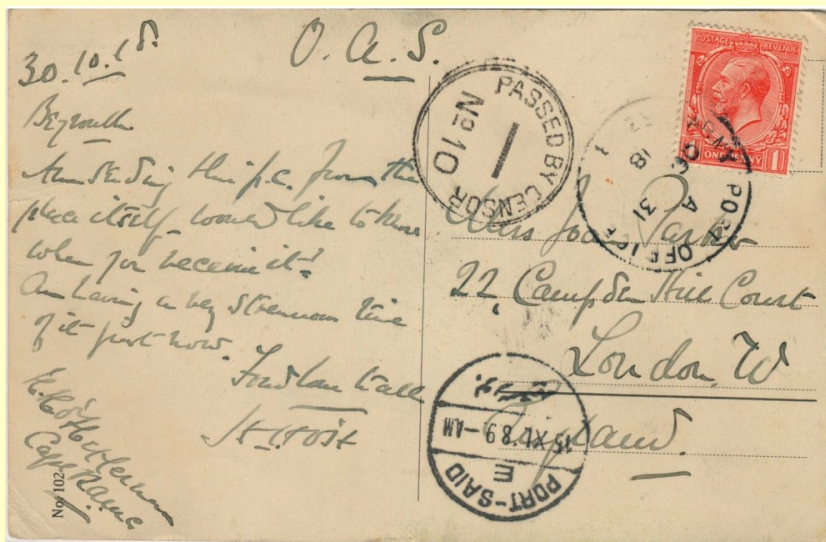 30.10.18.
O.A.S.
Beyrouth
Am sending this p.c. from the
place itself. Would like to know
when you receive it?
Am having a very strenuous time
of it just now.
Fond love to all
Capt. R.A.M.C.
No. 102
PASSED BY CENSOR
No 10
POSTAGE REVENUE
ONE PENNY
POST OFFICE
A
31
18
Miss Joan Parker
22, Campden Hill Court
London, W
England.
بورسعيد
15 XI. 18 9 - AM
E
PORT-SAID